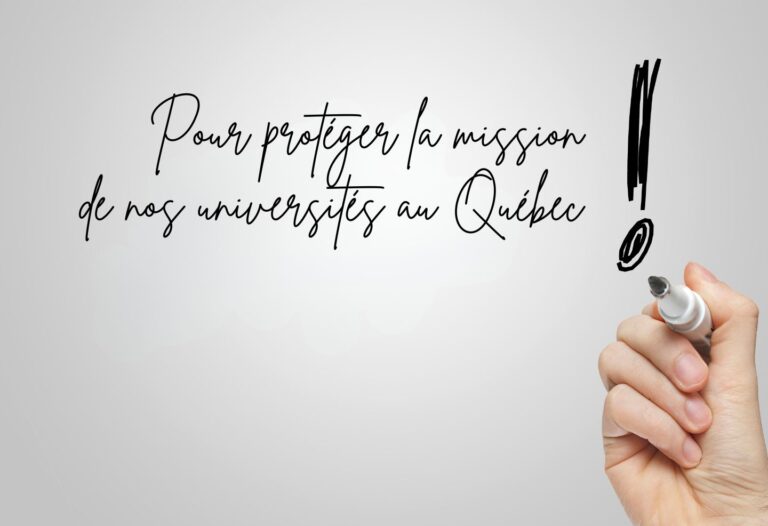 Pour protéger la mission
de nos universités au Québec !